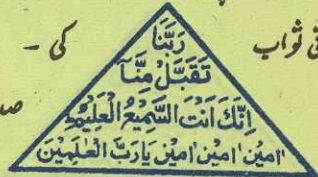 رَبَّنَا
ثواب کی -
تَقَبَّلْ مِنَّآ
اِنَّكَ اَنْتَ السَّمِيْعُ الْعَلِيْمُ ط
امين امين امين يَارَبَّ الْعٰلَمِيْنَ